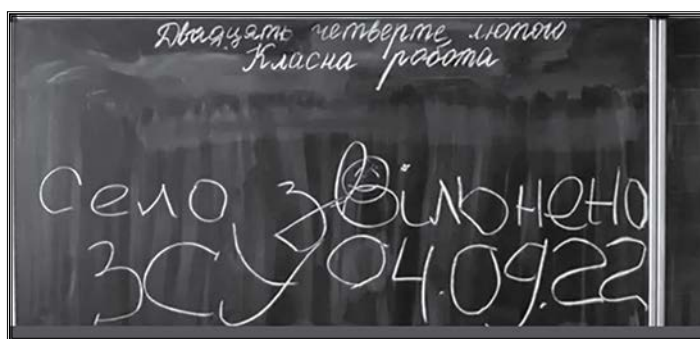 Двадцять четверте лютого
Класна робота
село звільонено
ЗСУ 04.09.22